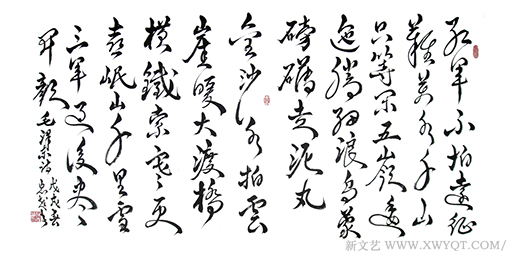 红軍不怕遠征
難萬水千山
只等闲五嶺逶
迤腾细浪乌蒙
磅礴走泥丸
金沙水拍雲
崖暖大渡橋
横鐵索寒更
喜岷山千里雪
三军过後尽
开颜 毛泽东诗
戊戌春
新文艺 WWW.XWYQT.COM